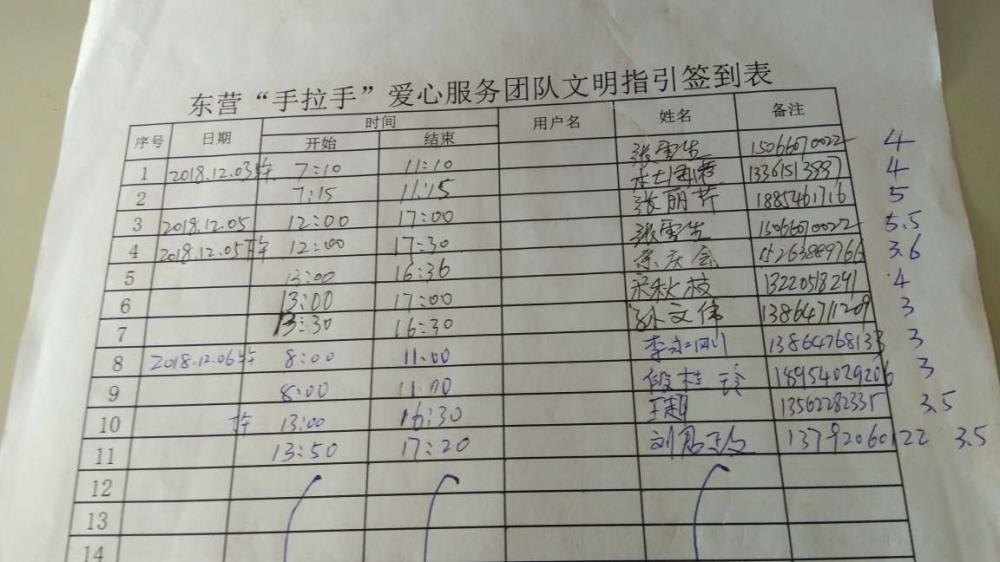 东营“手拉手”爱心服务团队文明指引签到表
序号 日期 时间 用户名 姓名 备注
开始 结束
1 2018.12.03 7:10 11:10 张雪生 15066070022 4
2 7:15 11:15 13361513597 4
3 2018.12.05 12:00 17:00 张丽芹 1885461716 5
4 2018.12.05 12:00 17:30 张雪生 15066070022 5.5
5 13:00 16:36 庆会 15263889766 3.6
6 13:00 17:00 宋秋枝 13220518291 4
7 13:30 16:30 孙文伟 13864711209 3
8 2018.12.06 8:00 11:00 李永刚 13864768133 3
9 8:00 11:00 段桂玲 18954029206 3
10 13:00 16:30 王超 13562282335 3.5
11 13:50 17:20 刘 13792060122 3.5
12
13
14